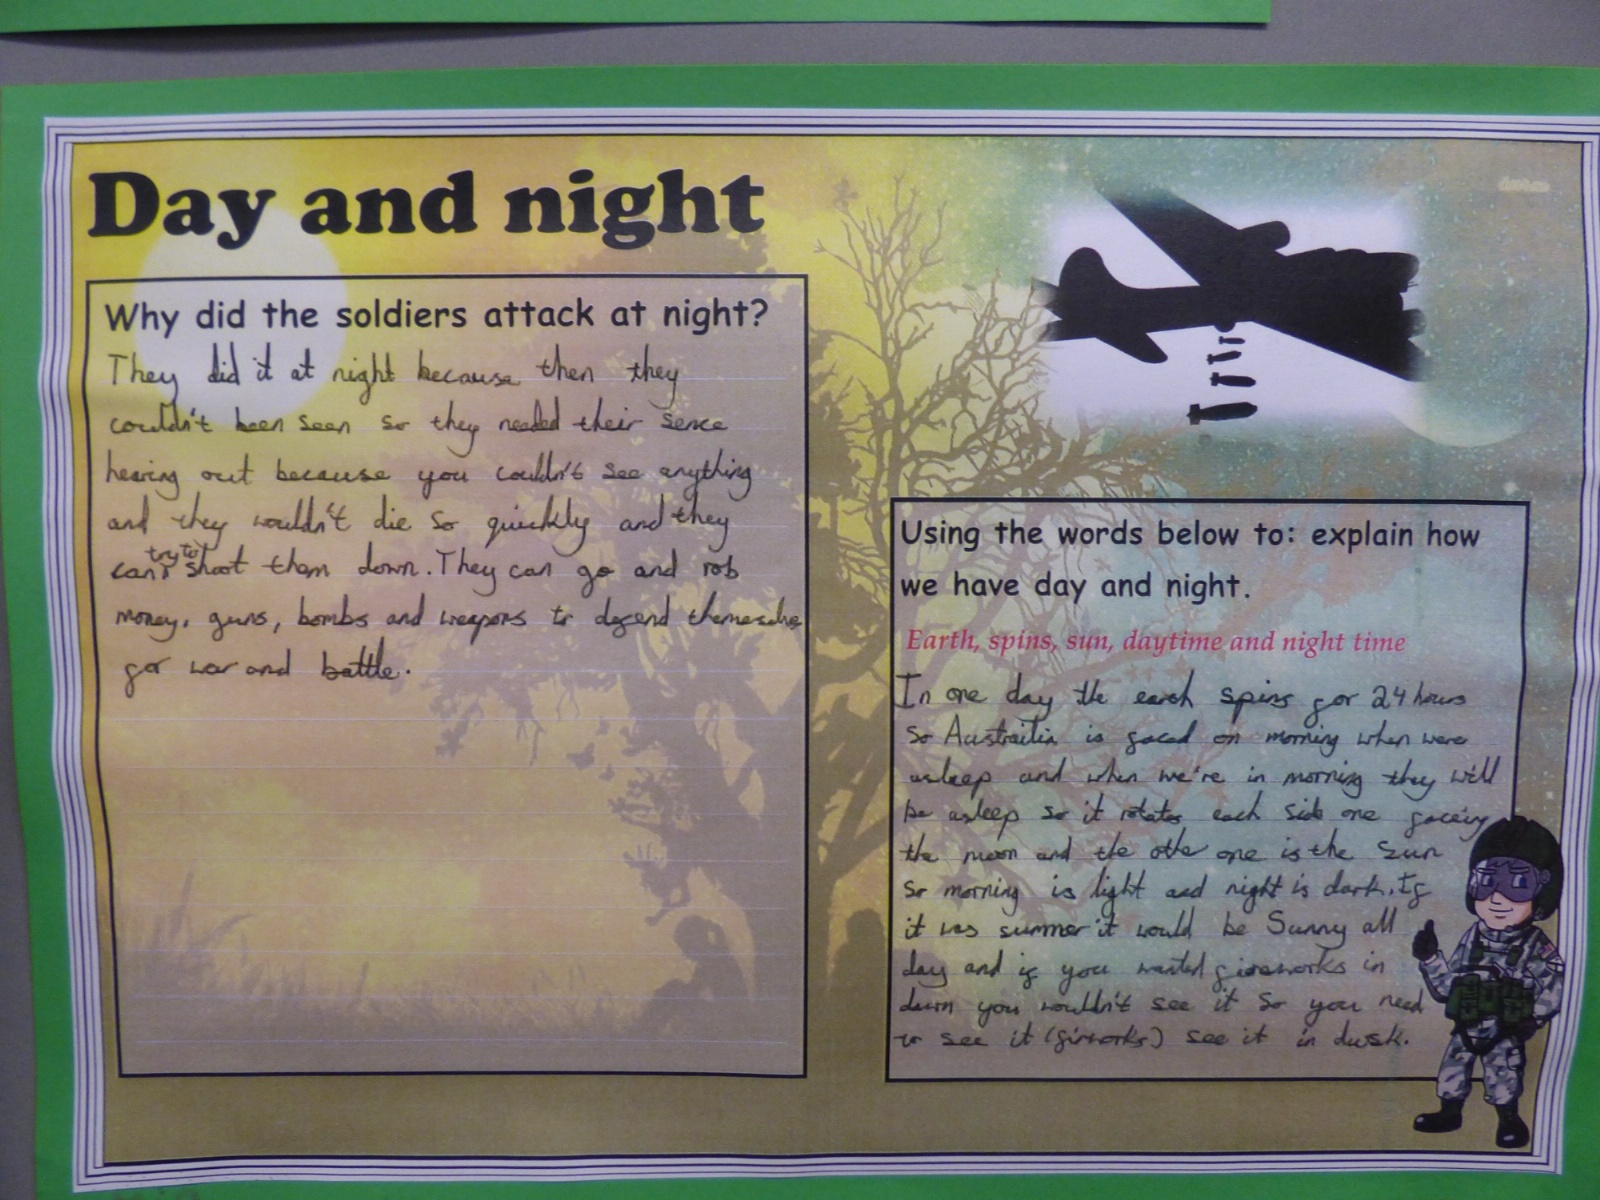 Day and night
Why did the soldiers attack at night?
They did it at night because then they
couldn't been seen so they needed their sence
hearing out because you couldn't see anything
and they wouldn't die so quickly and they
try to
can't shoot them down. They can go and rob
money, guns, bombs and weapons to defend themselve
for war and battle.
Using the words below to: explain how
we have day and night.
Earth, spins, sun, daytime and night time
In one day the earth spins for 24 hours
so Austraitia is faced on morning when were
asleep and when we're in morning they will
be asleep so it rotates each side one faceing
the moon and the othe one is the sun
so morning is light and night is dark. If
it was summer it would be Sunny all
day and if you wanted fireworks in
dawn you wouldn't see it so you need
to see it (firworks) see it in dusk.